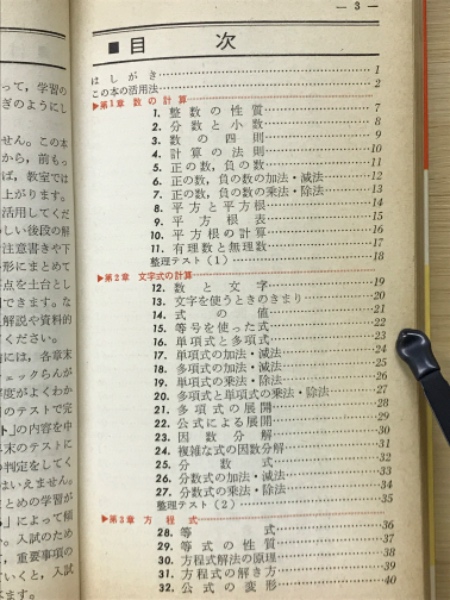 って，学習の
ぎのようにし
せん。この本
から，前もっ
ば，教室では
上がります。
活用してくだ
しい後段の解
注意書きや下
形にまとめて
点を土台とし
できます。な
解説や資料的
ください。
には，各章末
ェックらんが
度がよくわか
のテストで完
ト」の内容を中
末のテストに
の判定をしてく
はいえません。
まとめの学習が
」によって傾
。入試のため
，重要事項の
ていくと，入試
— 3 —
■目 次
はしがき……1
この本の活用法……2
▶第1章 数の計算
1. 整数の性質……7
2. 分数と小数……8
3. 数の四則……9
4. 計算の法則……10
5. 正の数，負の数……11
6. 正の数，負の数の加法・減法……12
7. 正の数，負の数の乗法・除法……13
8. 平方と平方根……14
9. 平方根表……15
10. 平方根の計算……16
11. 有理数と無理数……17
整理テスト（1）……18
▶第2章 文字式の計算
12. 数と文字……19
13. 文字を使うときのきまり……20
14. 式の値……21
15. 等号を使った式……22
16. 単項式と多項式……23
17. 単項式の加法・減法……24
18. 多項式の加法・減法……25
19. 単項式の乗法・除法……26
20. 多項式と単項式の乗法・除法……27
21. 多項式の展開……28
22. 公式による展開……29
23. 因数分解……30
24. 複雑な式の因数分解……31
25. 分数式……32
26. 分数式の加法・減法……33
27. 分数式の乗法・除法……34
整理テスト（2）……35
▶第3章 方程式
28. 等式……36
29. 等式の性質……37
30. 方程式解法の原理……38
31. 方程式の解き方……39
32. 公式の変形……40